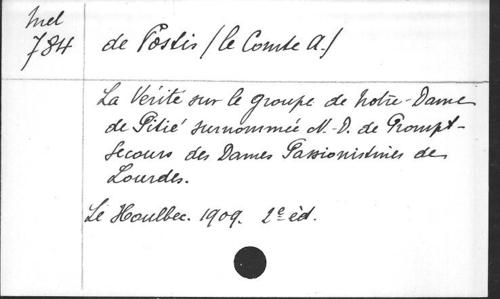 Mel
784
de Postis / le Comte A. /
La Vérité sur le groupe de Notre-Dame
de Pitié surnommée N.-D. de Prompt-
Secours des Dames Passionistines de
Lourdes.
Le Houlbec. 1909. 2e éd.